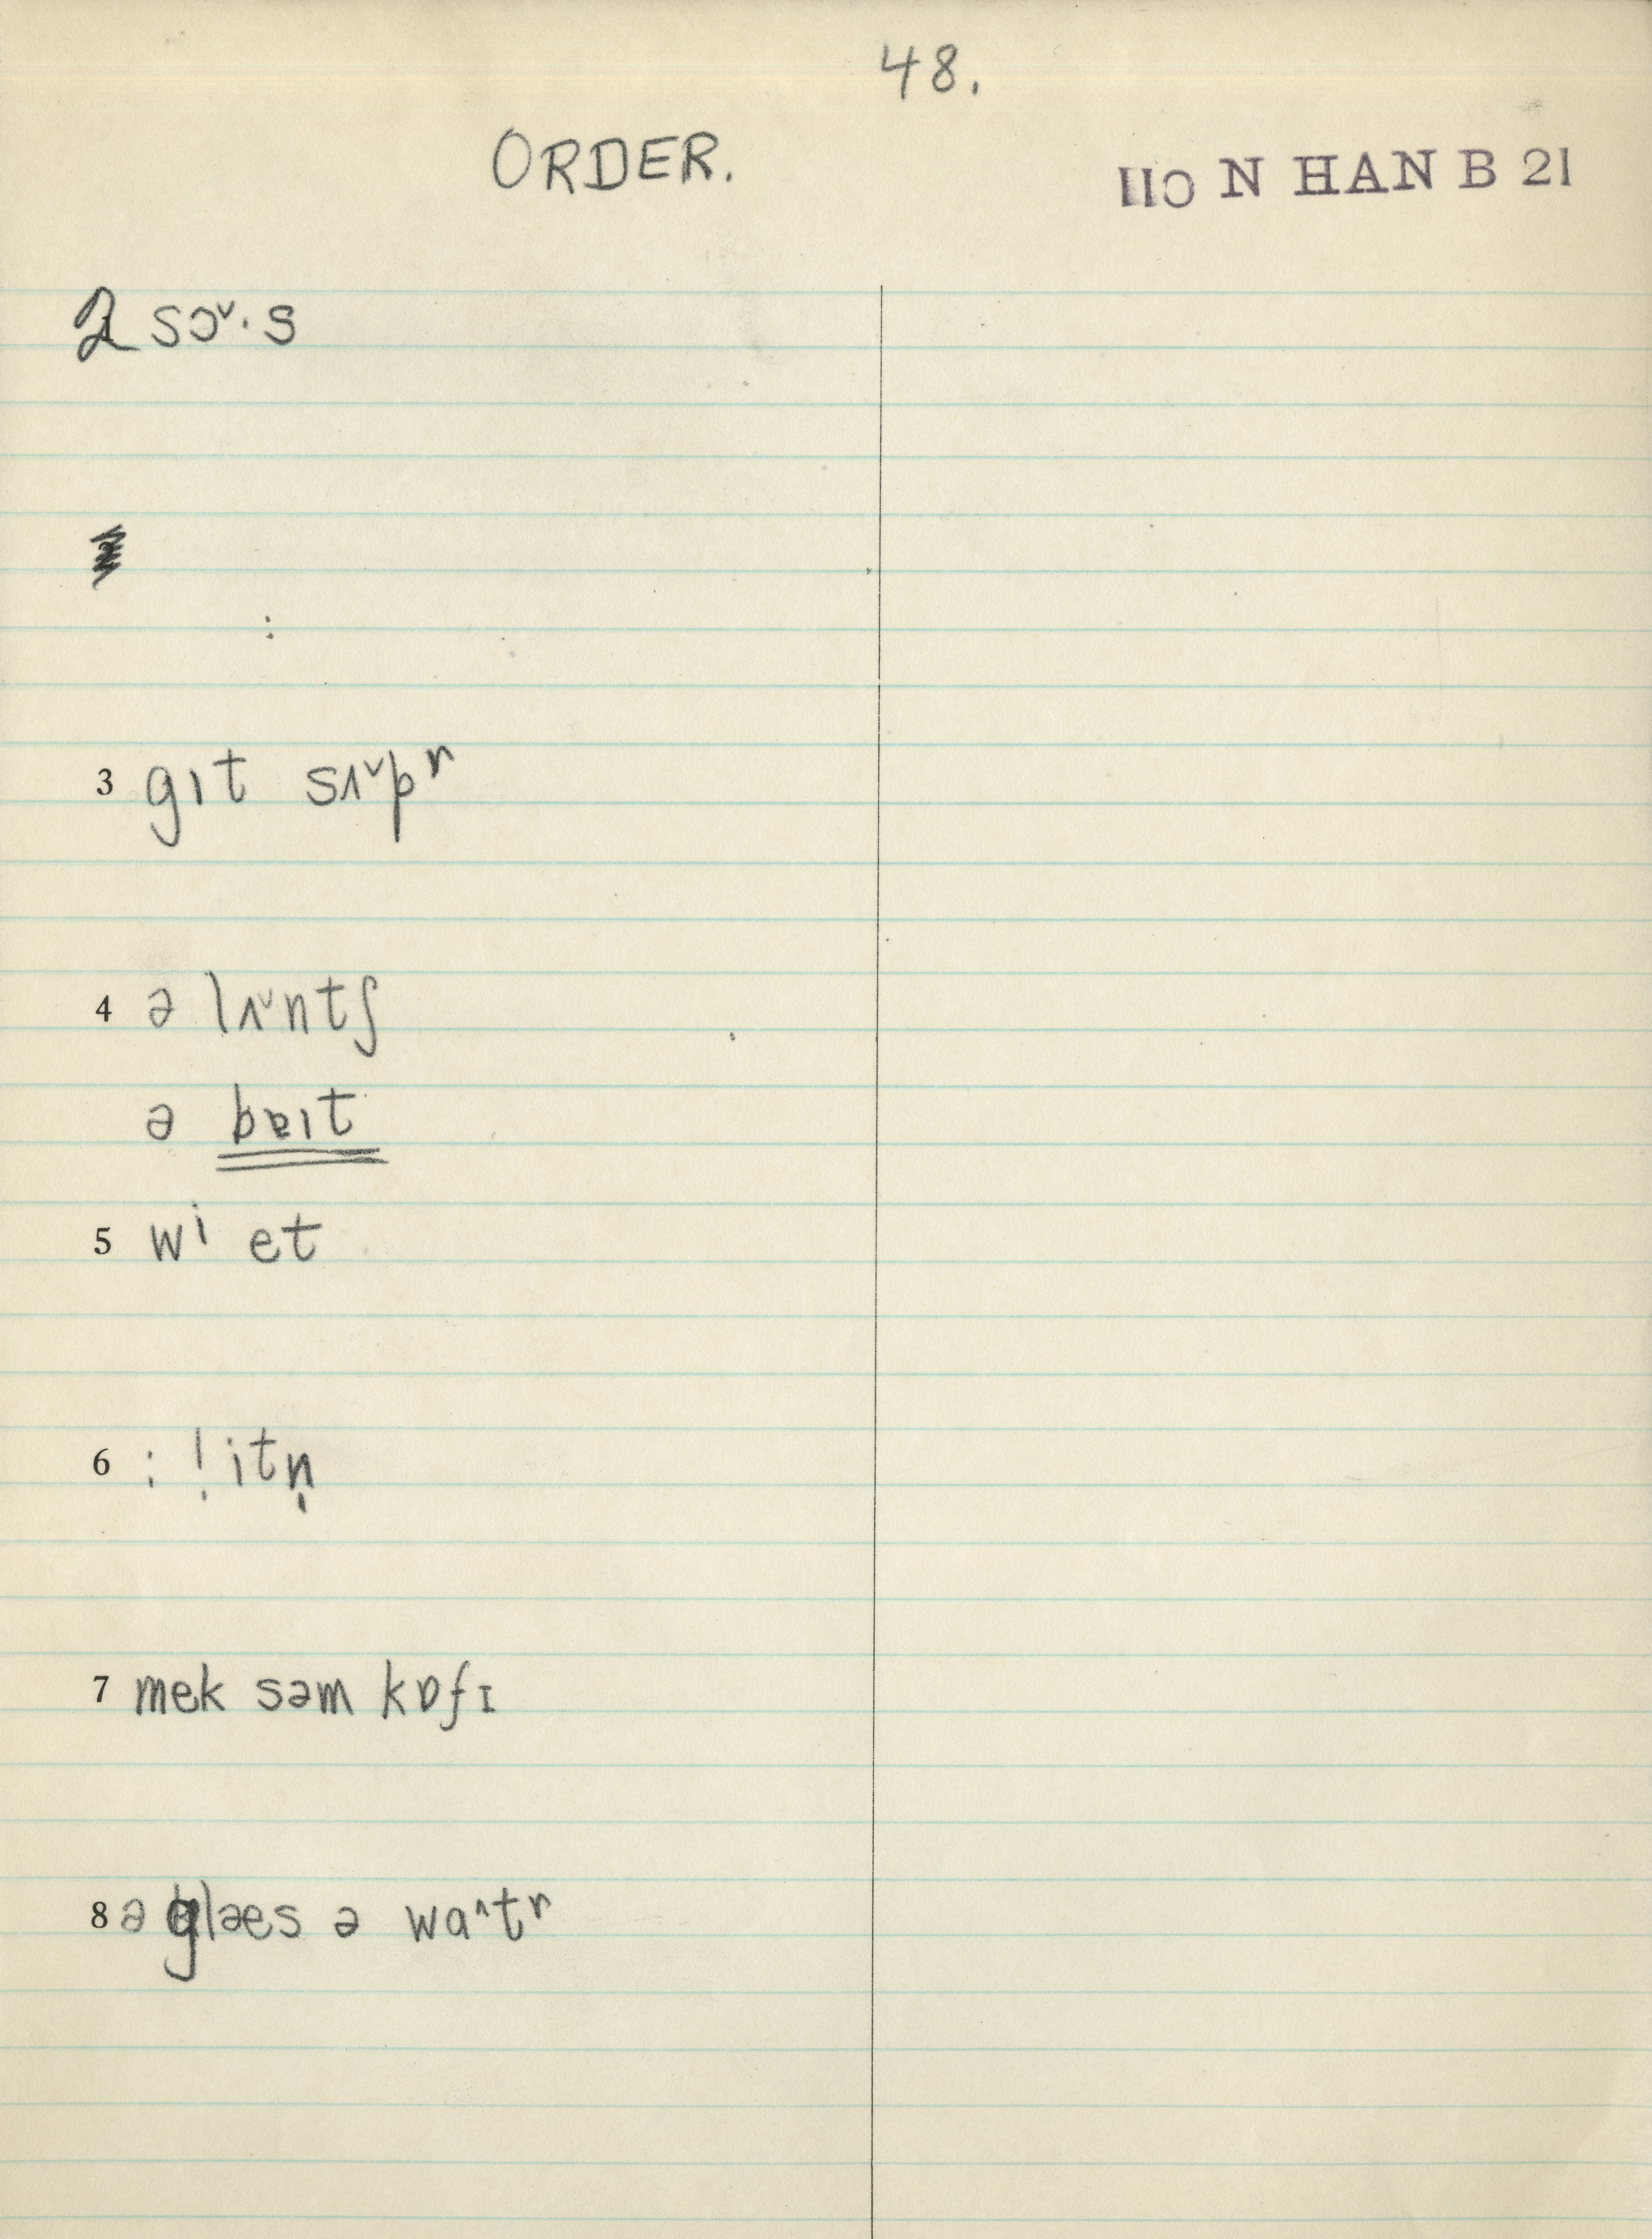 48.
ORDER.
IIO N HAN B 21
2 sɔˇ·s
:
3 gɪt sʌˇpʳ
4 ə lʌˇntʃ
ə bɐɪt
5 wⁱ et
6 : ! itn̩
7 mek səm kɒfɪ
8 ə glæs ə wa^tʳ